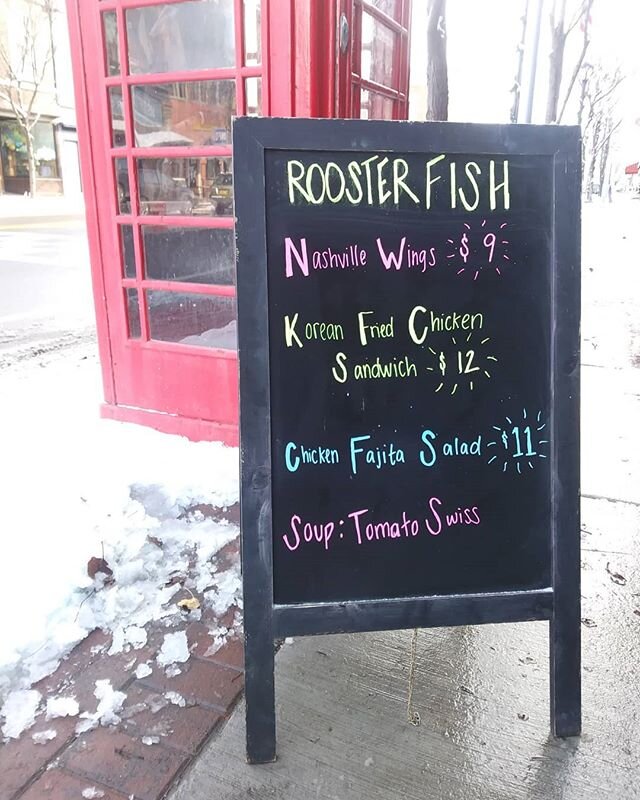 ROOSTER FISH
Nashville Wings $9
Korean Fried Chicken
Sandwich - $12
Chicken Fajita Salad - $11
Soup: Tomato Swiss